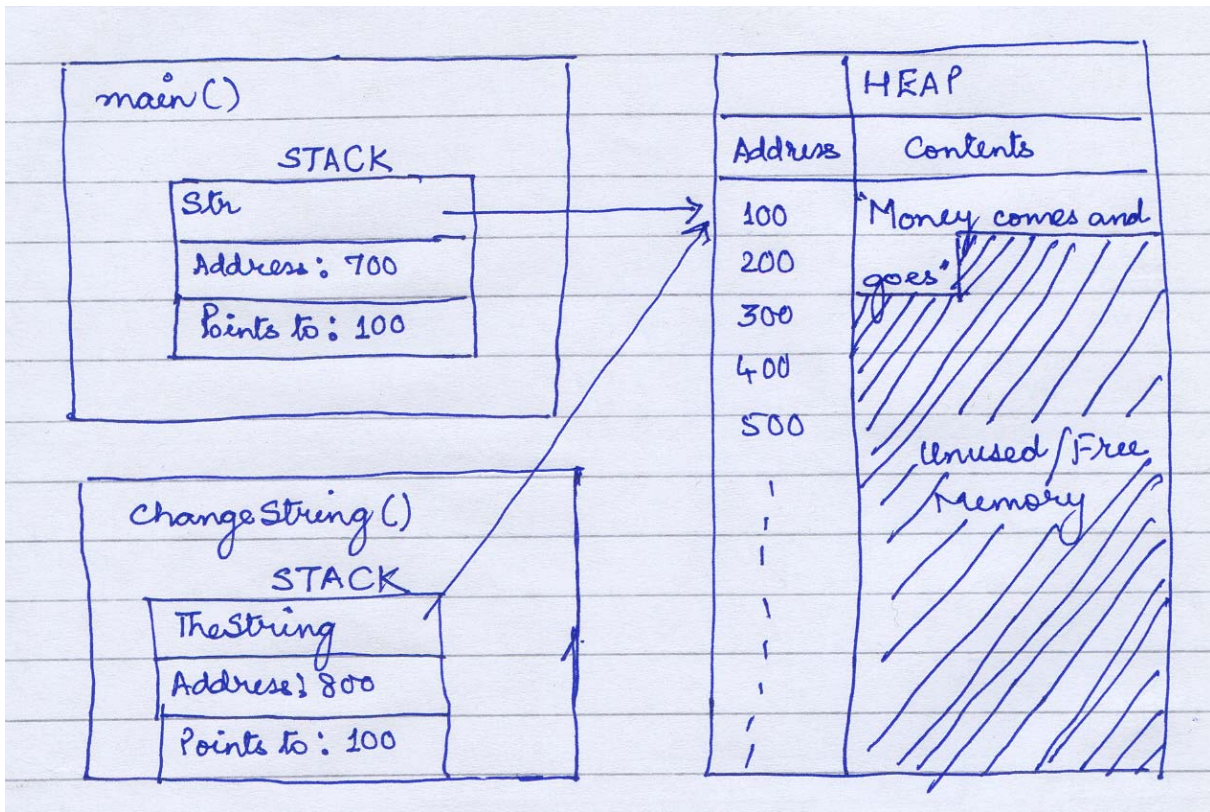 main()
STACK
Str
Address: 700
Points to: 100
changeString()
STACK
TheString
Address: 800
Points to: 100
HEAP
Address Contents
100 "Money comes and
200 goes"
300
400
500
Unused/Free
Memory